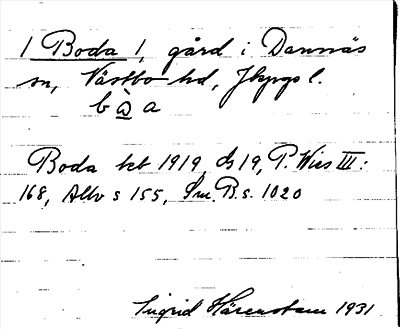 1 Boda 1, gård i Dannäs
sn, Västbo hd, Jkpgs l.
b ò a
Boda kb 1919, ds 19, P. Wies III:
168, Allv s 155, Sm. B. s. 1020
Sigrid Härenstam 1931